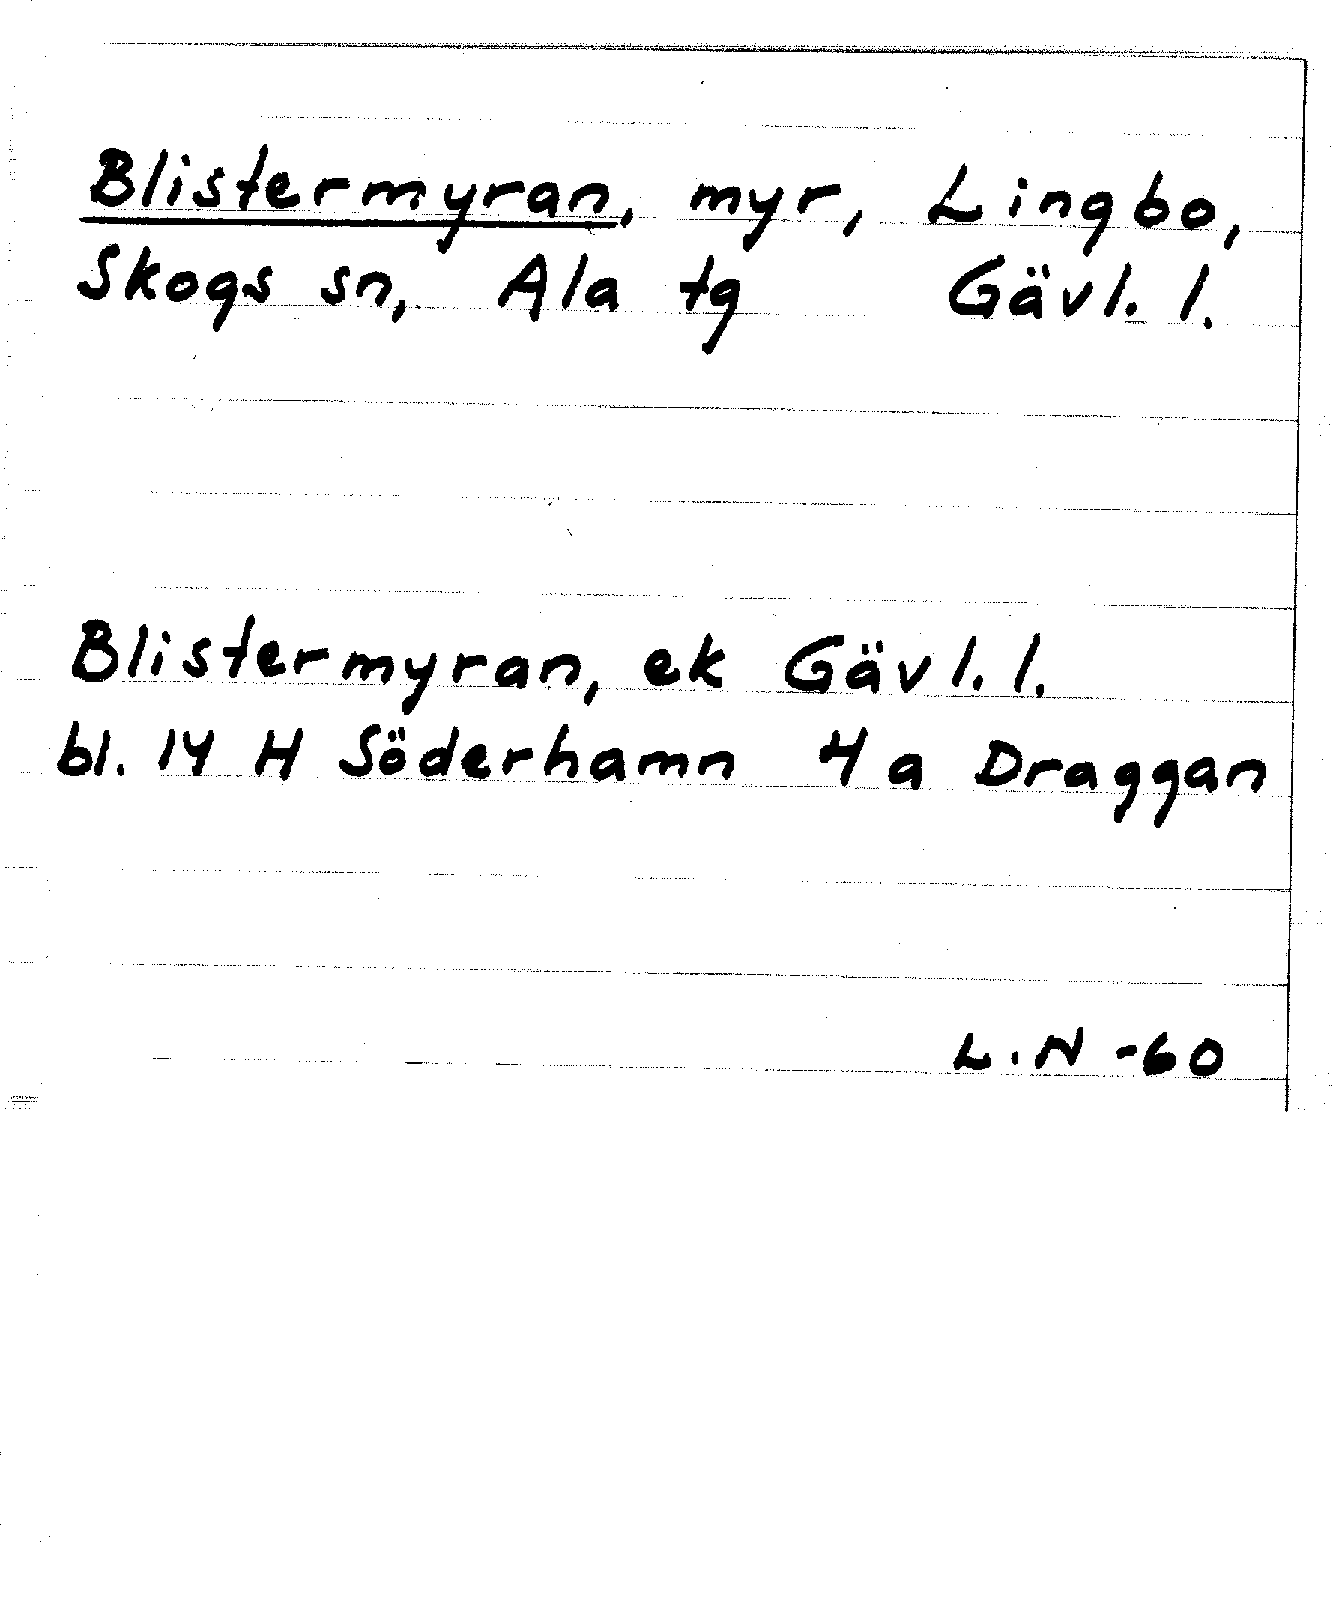 Blistermyran, myr, Lingbo,
Skogs sn, Ala tg Gävl. l.
Blistermyran, ek Gävl. l.
bl. 14 H Söderhamn 4 a Draggan
L. N -60